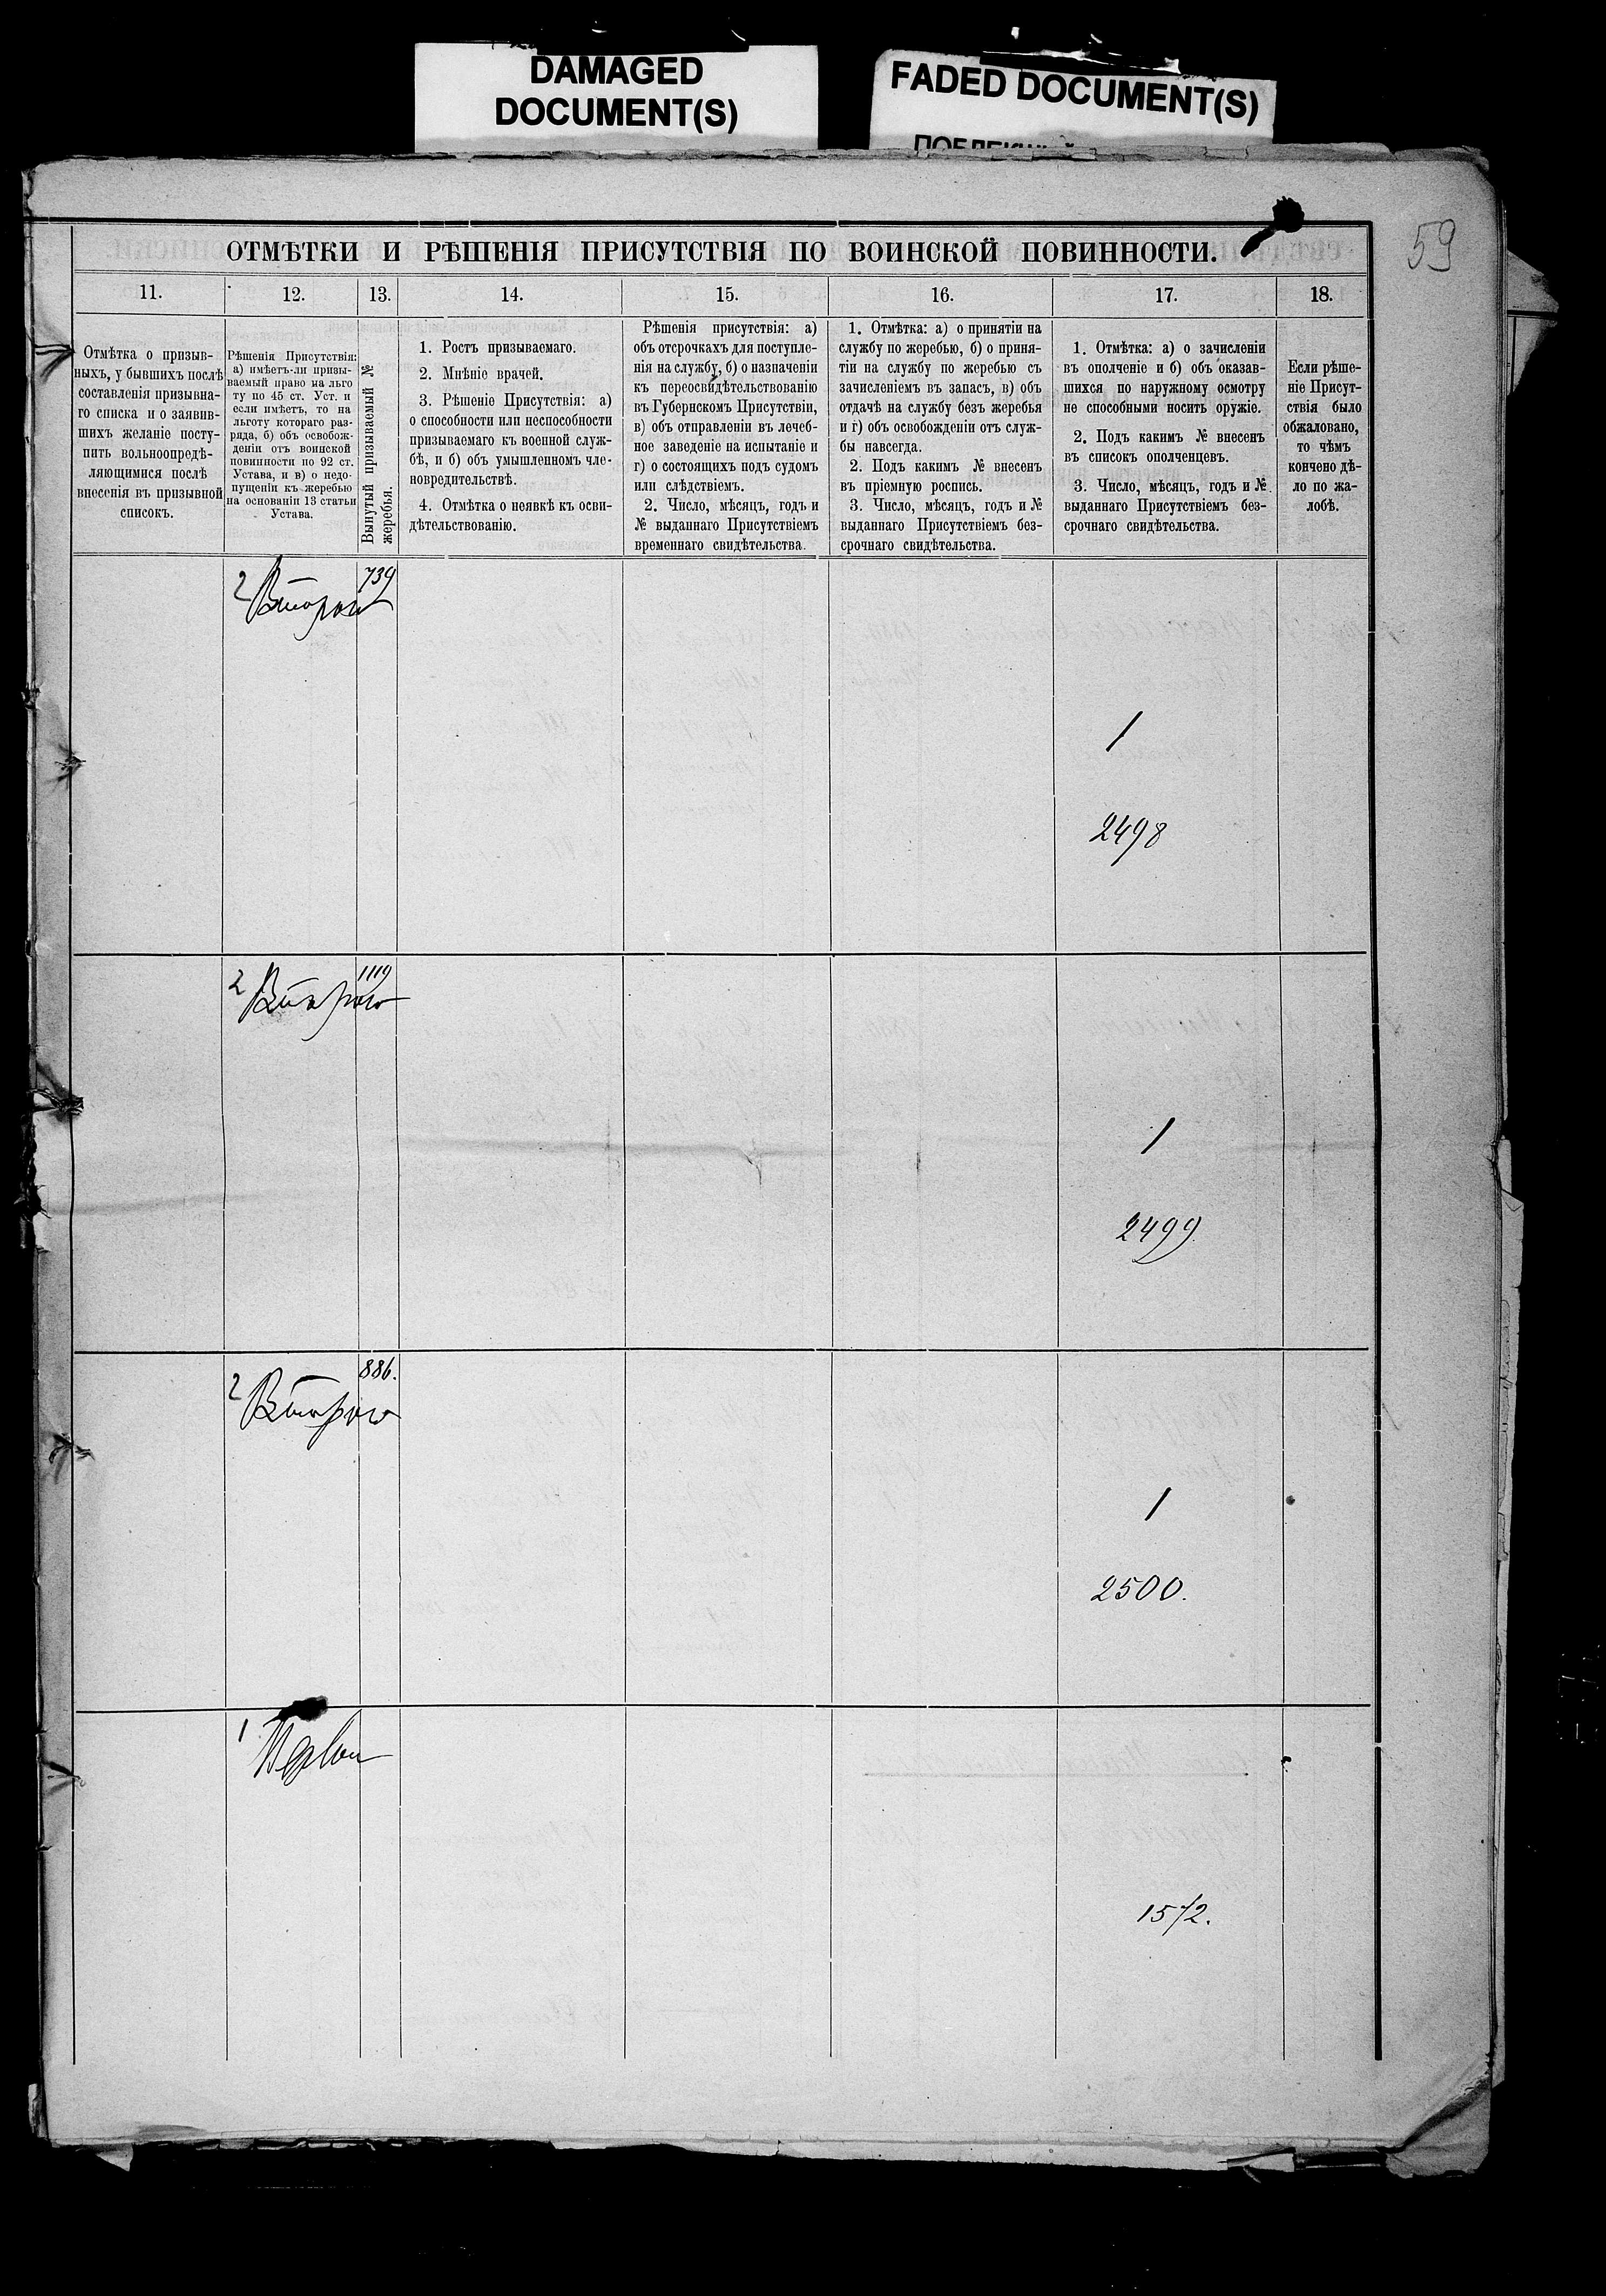 DAMAGED
DOCUMENT(S)
FADED DOCUMENT(S)
59
ОТМѢТКИ И РѢШЕНІЯ ПРИСУТСТВІЯ ПО ВОИНСКОЙ ПОВИННОСТИ.
11.
12.
13.
14.
15.
16.
17.
18.
Отмѣтка о призыв-
ныхъ, у бывшихъ послѣ
составленія призывна-
го списка и о заявив-
шихъ желаніе посту-
пить вольноопредѣ-
ляющимися послѣ
внесенія въ призывной
списокъ.
Рѣшенія Присутствія:
а) имѣетъ-ли призы-
ваемый право на льго
ту по 45 ст. Уст. и
если имѣетъ, то на
льготу котораго раз-
ряда, б) объ освобож-
деніи отъ воинской
повинности по 92 ст.
Устава, и в) о недо-
пущеніи къ жеребью
на основаніи 13 статьи
Устава.
Вынутый призываемый №
жеребья.
1. Ростъ призываемаго.
2. Мнѣніе врачей.
3. Рѣшеніе Присутствія: а)
о способности или неспособности
призываемаго къ военной служ-
бѣ, и б) объ умышленномъ чле-
новредительствѣ.
4. Отмѣтка о неявкѣ къ осви-
дѣтельствованію.
Рѣшенія присутствія: а)
объ отсрочкахъ для поступле-
нія на службу, б) о назначеніи
къ переосвидѣтельствованію
въ Губернскомъ Присутствіи,
в) объ отправленіи въ лечеб-
ное заведеніе на испытаніе и
г) о состоящихъ подъ судомъ
или слѣдствіемъ.
2. Число, мѣсяцъ, годъ и
№ выданнаго Присутствіемъ
временнаго свидѣтельства.
1. Отмѣтка: а) о принятіи на
службу по жеребью, б) о приня-
тіи на службу по жеребью съ
зачисленіемъ въ запасъ, в) объ
отдачѣ на службу безъ жеребья
и г) объ освобожденіи отъ служ-
бы навсегда.
2. Подъ какимъ № внесенъ
въ пріемную роспись.
3. Число, мѣсяцъ, годъ и №
выданнаго Присутствіемъ без-
срочнаго свидѣтельства.
1. Отмѣтка: а) о зачисленіи
въ ополченіе и б) объ оказав-
шихся по наружному осмотру
не способными носить оружіе.
2. Подъ какимъ № внесенъ
въ списокъ ополченцевъ.
3. Число, мѣсяцъ, годъ и №
выданнаго Присутствіемъ без-
срочнаго свидѣтельства.
Если рѣше-
ніе Присут-
ствія было
обжаловано,
то чѣмъ
кончено дѣ-
ло по жа-
лобѣ.
2 Второй 739
1
2498
2 Второй 1119
1
2499.
2 Второй 886.
1
2500.
1 Первый
1572.